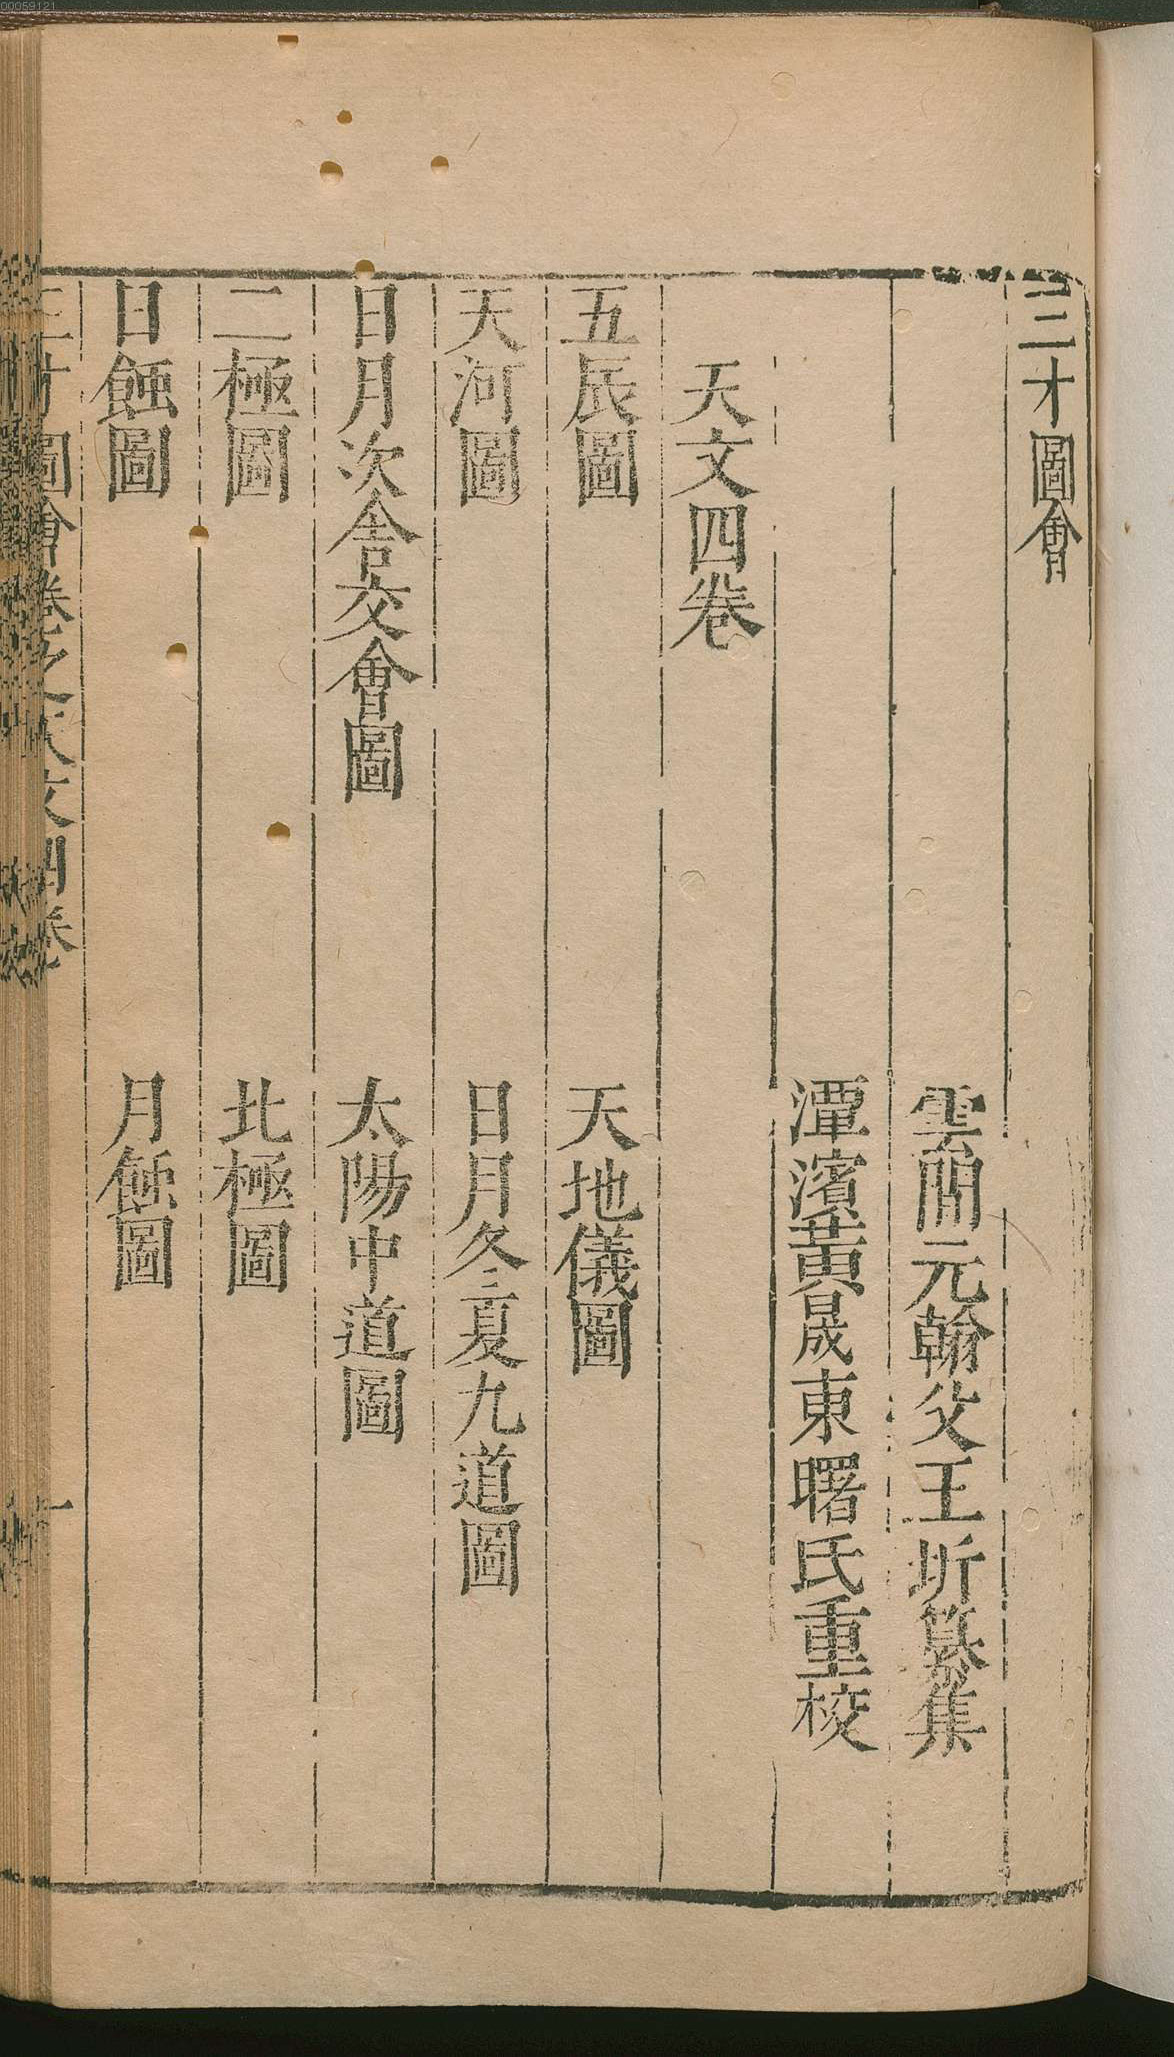 00059121
三才圖會
雲間元翰父王圻纂集
潭濱黃晟東曙氏重校
天文四卷
五辰圖
天地儀圖
天河圖
日月冬夏九道圖
日月次舍交會圖
太陽中道圖
二極圖
北極圖
日蝕圖
月蝕圖
三才圖會卷之天文四卷
一